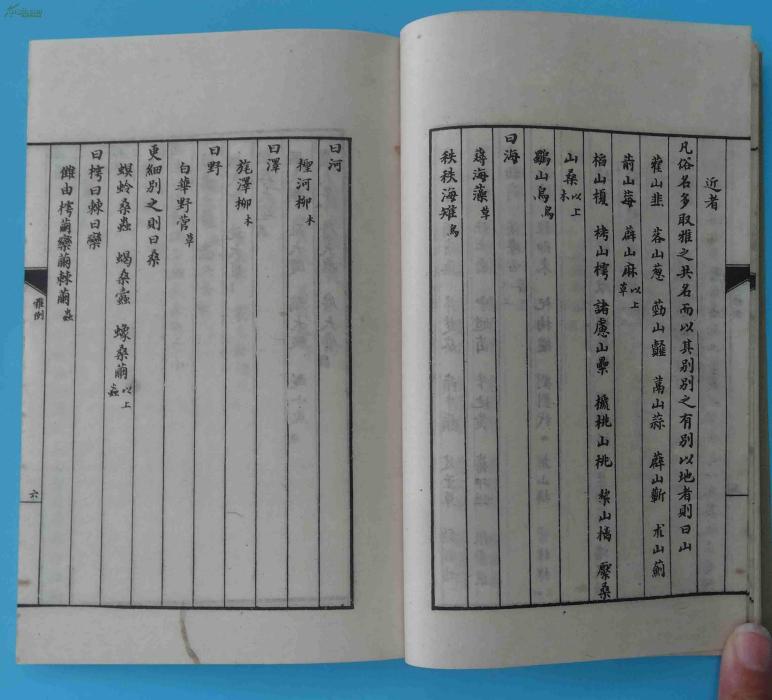 近者
凡俗名多取雅之共名而以其別別之有別以地者則曰山
藿山韭 茖山葱 葝山䪥 蒚山蒜 薜山蘄 朮山薊
葥山莓 薜山麻 以上草
槄山榎 栲山樗 諸慮山櫐 榹桃山桃 棃山樆 檿桑
山桑 以上木
鸀山烏 鳥
曰海
蕁海藻 草
秩秩海雉 鳥
曰河
檉河柳 木
曰澤
旄澤柳 木
曰野
白華野菅 草
更細別之則曰桑
螟蛉桑蟲 蝎桑蠹 蟓桑繭 以上蟲
曰樗曰棘曰欒
雔由樗繭欒繭棘繭 蟲
雅例
六